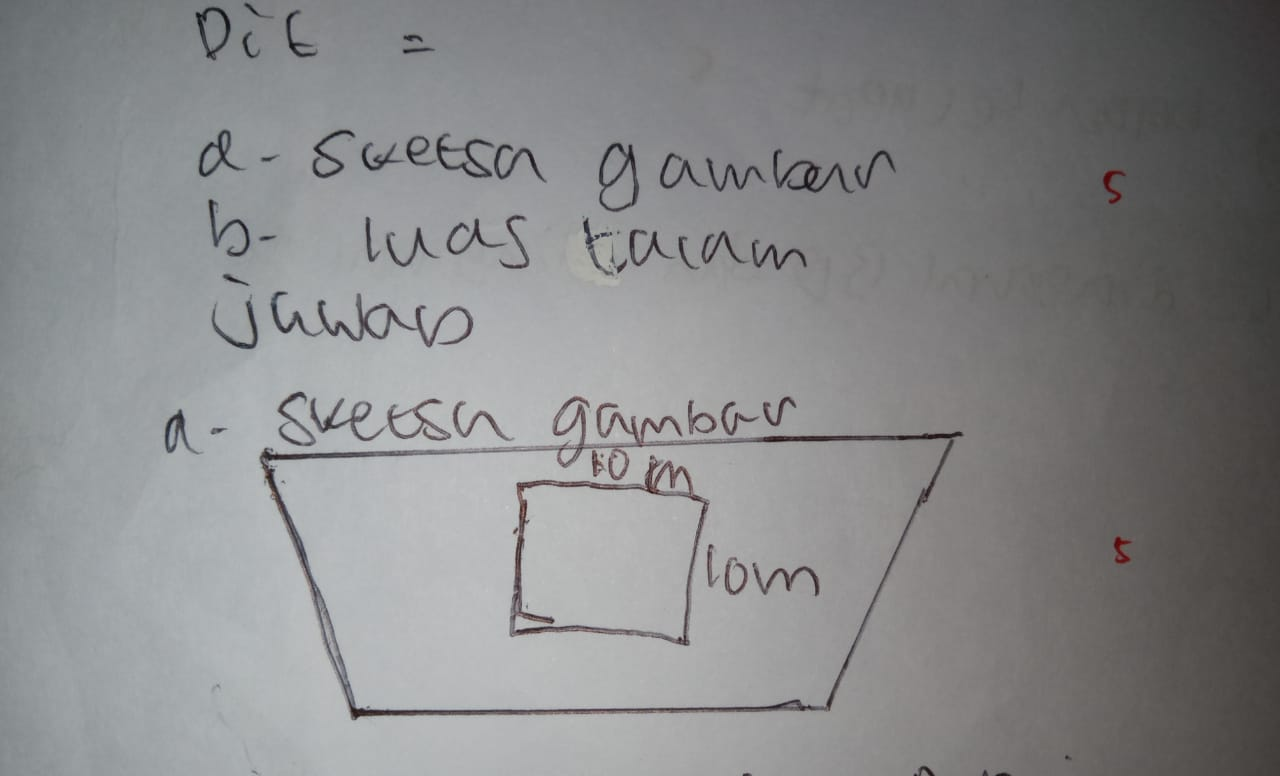 Dit =
a - Sketsa gambar
5
b - luas talam
jawab
a - Sketsa gambar
10 m
10m
5